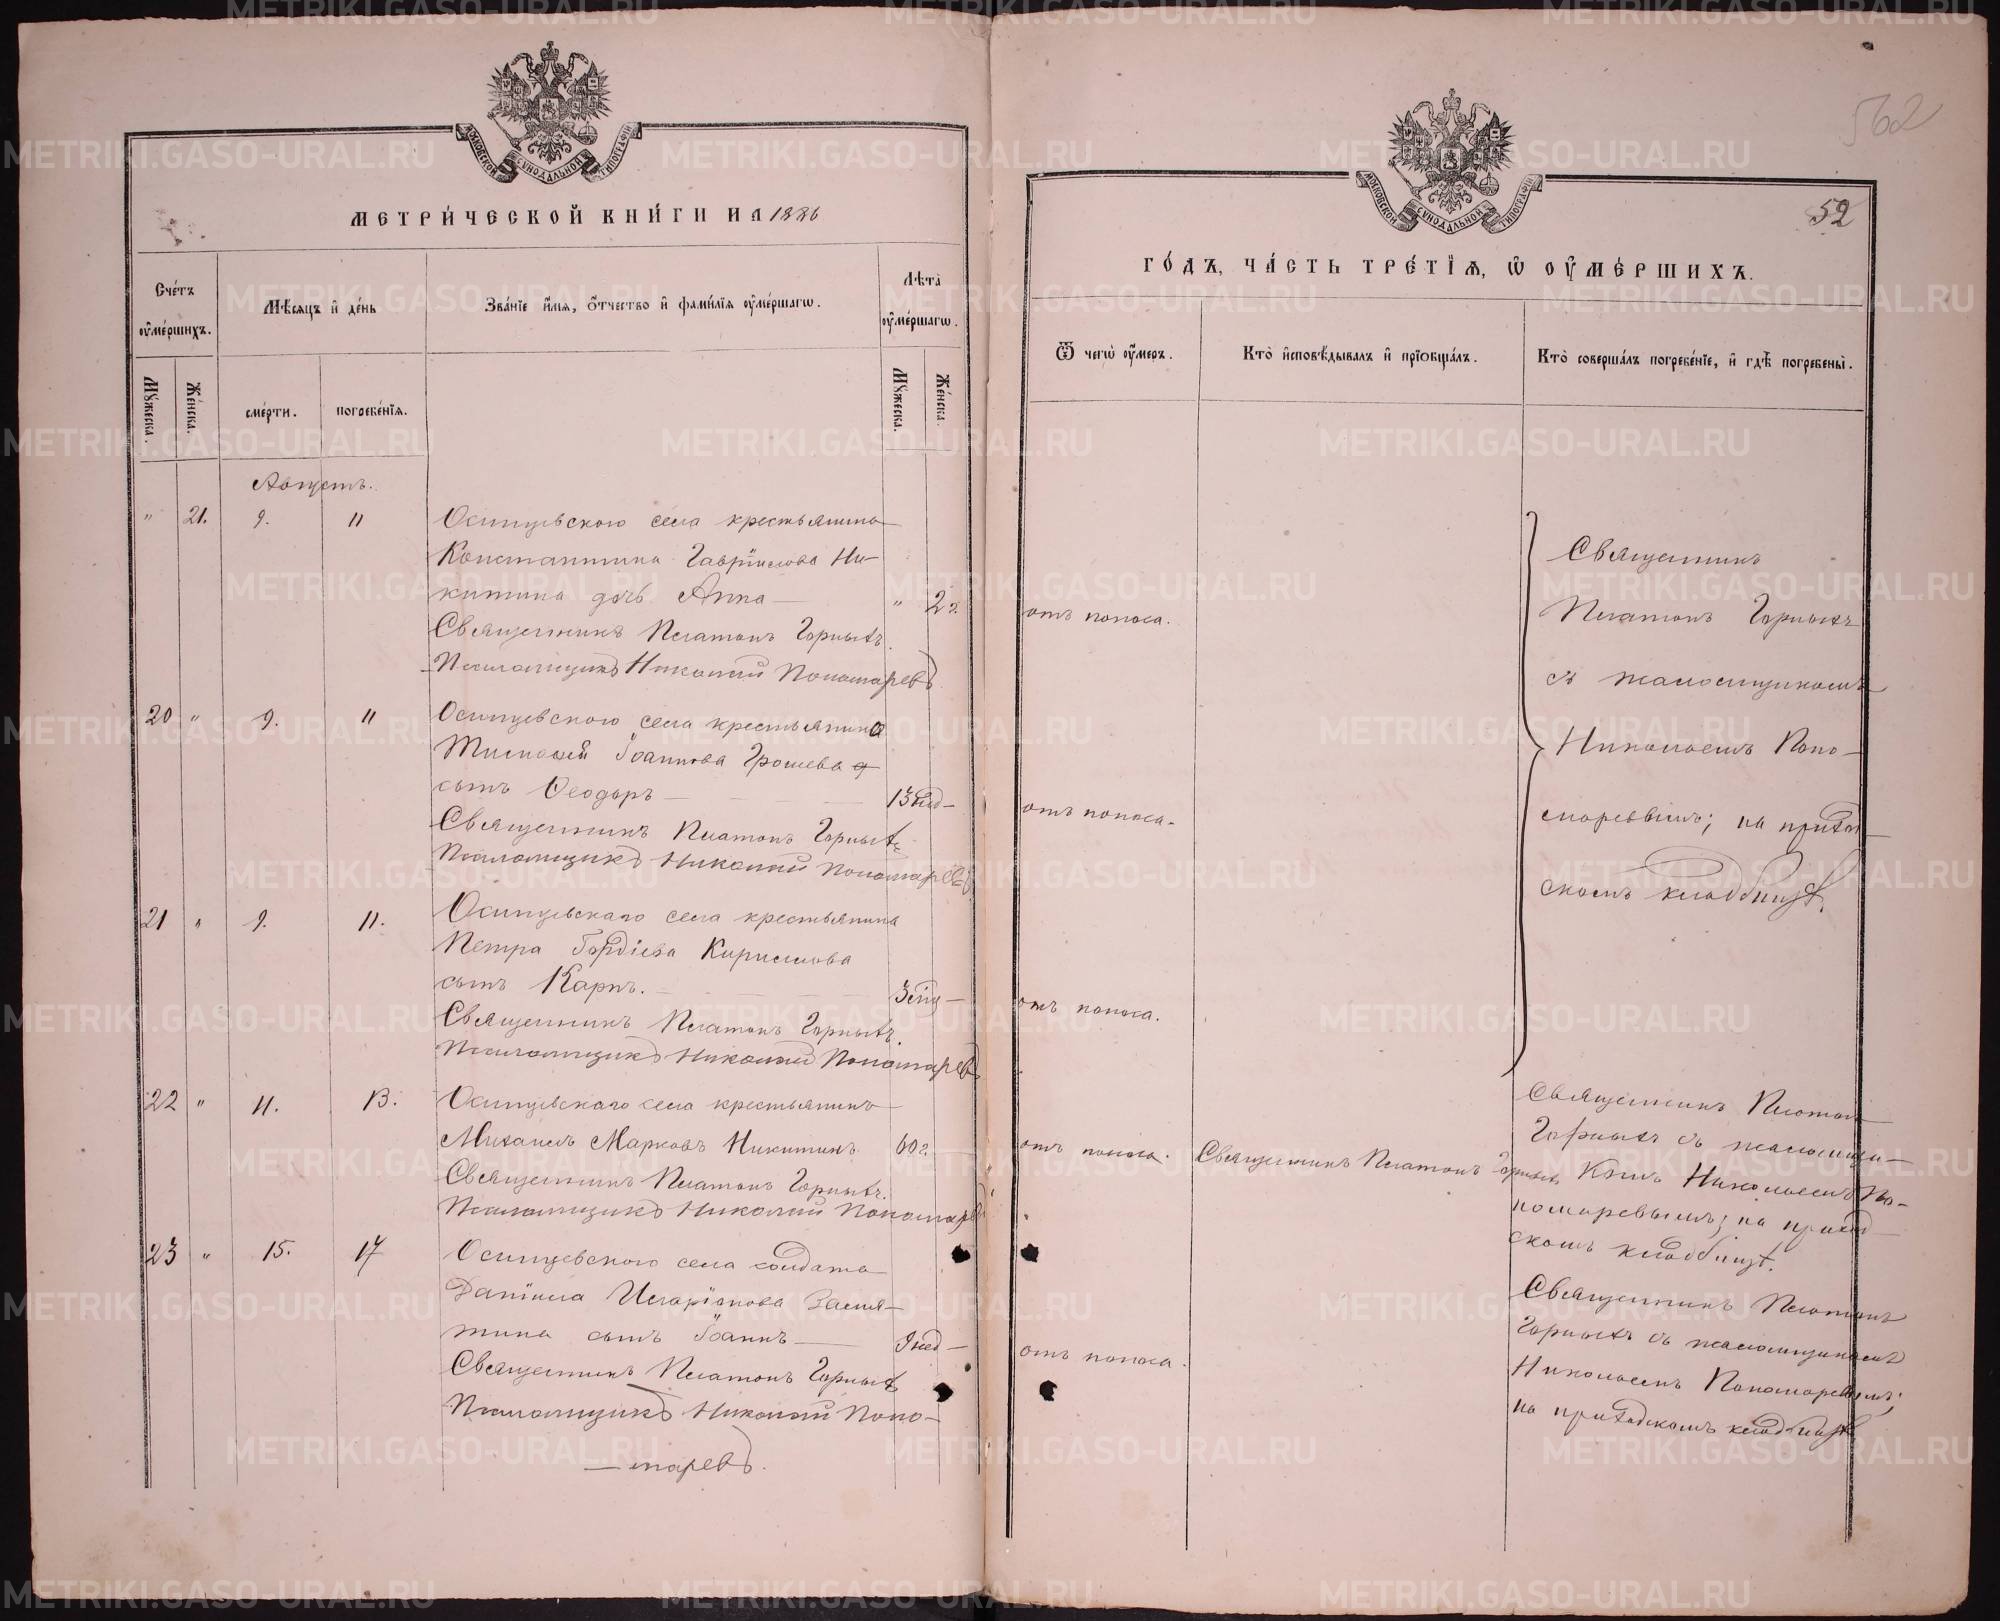 МОСКОВСКОЙ СѴНОДАЛЬНОЙ ТИПОГРАФІИ
МЕТРИ́ЧЕСКОЙ КНИ́ГИ НА 1886
Сче́тъ оу҆ме́ршихъ.
Мѣ́сяцъ и҆ де́нь
Зва́нїе и҆́мя, ѻ҆́тчество и҆ фами́лїя оу҆ме́ршагѡ.
Лѣ́та оу҆ме́ршагѡ.
Мꙋ́жеска.
Же́нска.
сме́рти.
погребе́нїя.
Мꙋ́жеска.
Же́нска.
Августъ.
" 21. 9. 11 Осинцевского села крестьянина
Константина Гавріилова Ни-
китина дочь Анна — " 2 г.
Священникъ Платонъ Горныхъ.
Псаломщикъ Николай Пономаревъ
20 " 9. 11 Осинцевского села крестьянина
Тимофея Іоаннова Грошева
сынъ Ѳеодоръ — 13 нед —
Священникъ Платонъ Горныхъ
Псаломщикъ Николай Пономаревъ
21 " 9. 11. Осинцевскаго села крестьянина
Петра Гордіева Кириллова
сынъ Карпъ. —
Священникъ Платонъ Горныхъ.
Псаломщикъ Николай Пономаревъ
22 " 11. 13. Осинцевскаго села крестьянинъ
Михаилъ Марковъ Никитинъ 60 г.
Священникъ Платонъ Горныхъ.
Псаломщикъ Николай Пономаревъ
23 " 15. 17 Осинцевского села солдата
Даніила Иларіонова Замя-
тина сынъ Іоаннъ — 9 нед —
Священникъ Платонъ Горныхъ
Псаломщикъ Николай Поно-
— маревъ.
562
52
МОСКОВСКОЙ СѴНОДАЛЬНОЙ ТИПОГРАФІИ
ГО́ДЪ, ЧА́СТЬ ТРЕ́ТЇЯ, Ѡ҆ ОУ҆МЕ́РШИХЪ.
Ѿ чегѡ̀ оу҆́меръ.
Кто̀ и҆сповѣ́дывалъ и҆ прїѻбща́лъ.
Кто̀ соверша́лъ погребе́нїе, и҆ гдѣ̀ погребены̀.
отъ поноса.
отъ поноса.
отъ поноса.
Священникъ
Платонъ Горныхъ
съ псаломщикомъ
Николаемъ Поно-
маревымъ; на приход-
скомъ кладбищѣ.
отъ поноса. Священникъ Платонъ Горныхъ
Священникъ Платонъ
Горныхъ съ псаломщи-
комъ Николаемъ По-
номаревымъ; на приход-
скомъ кладбищѣ.
отъ поноса.
Священникъ Платонъ
Горныхъ съ псаломщикомъ
Николаемъ Пономаревымъ;
на приходскомъ кладбищѣ
METRIKI.GASO-URAL.RU